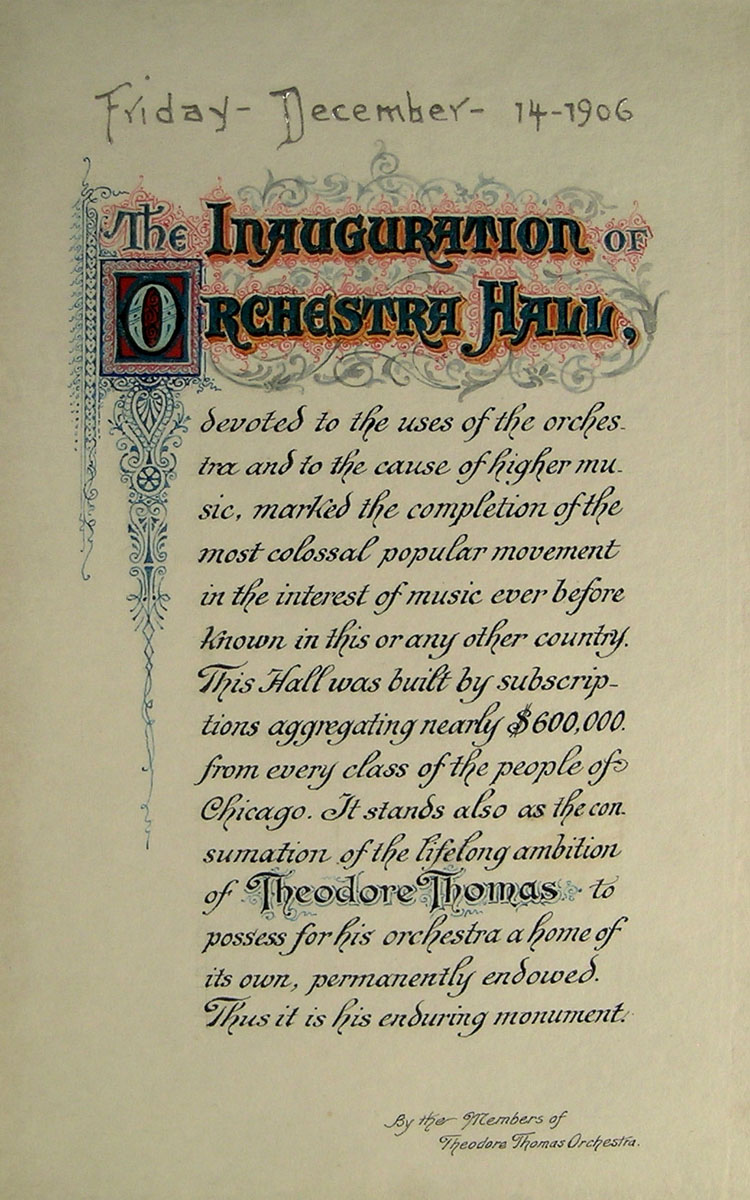 Friday- December- 14-1906
The Inauguration of
Orchestra Hall,
devoted to the uses of the orches-
tra and to the cause of higher mu-
sic, marked the completion of the
most colossal popular movement
in the interest of music ever before
known in this or any other country.
This Hall was built by subscrip-
tions aggregating nearly $600,000.
from every class of the people of
Chicago. It stands also as the con-
sumation of the lifelong ambition
of Theodore Thomas to
possess for his orchestra a home of
its own, permanently endowed.
Thus it is his enduring monument.
By the Members of
Theodore Thomas Orchestra.